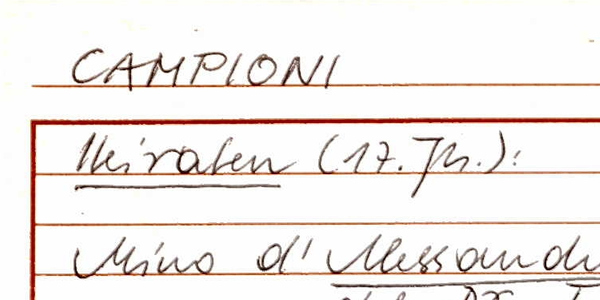 CAMPIONI
Heiraten (17. Jh.):
Mino d'Alessandr